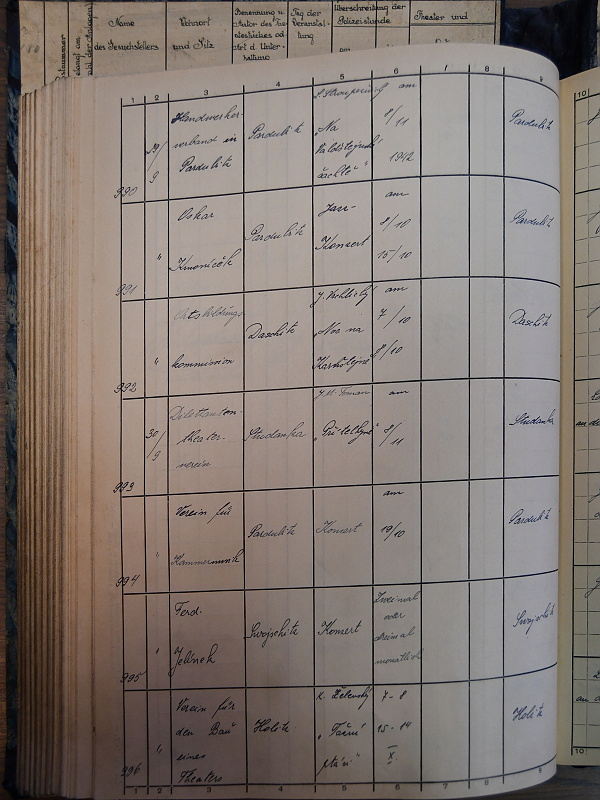 Name
des Gesuchstellers
Wohnort
und Sitz
Benennung u.
Autor des
Tag der
Veranstal-
tung
Überschreitung der
Polizeistunde
Theater und
1 2 3 4 5 6 7 8 9
10
990
29/9
Handwerker-
verband in
Pardubitz
Pardubitz
"Na
Valdštejnské
šachtě"
am
8/11
1942
Pardubitz
991
"
Oskar
Pardubitz
Jazz-
Konzert
am
8/10
15/10
Pardubitz
992
"
Ortsbildungs-
kommission
Daschitz
J. Vrchlický
"Noc na
Karlštejně
am
7/10
8/10
Daschitz
993
30/9
Dilettanten-
theater-
verein
Studanka
am
8/11
Studanka
994
"
Verein für
Kammermusik
Pardubitz
Konzert
am
19/10
Pardubitz
995
"
Ferd.
Jelinek
Swojschitz
Konzert
Zweimal
oder
dreimal
monatlich
Swojschitz
996
"
Verein für
den Bau
eines
Theaters
Holitz
X. Želenský
"Tažní
ptáci"
7-8
15-14
X.
Holitz
1 2 3 4 5 6 7 8 9
10